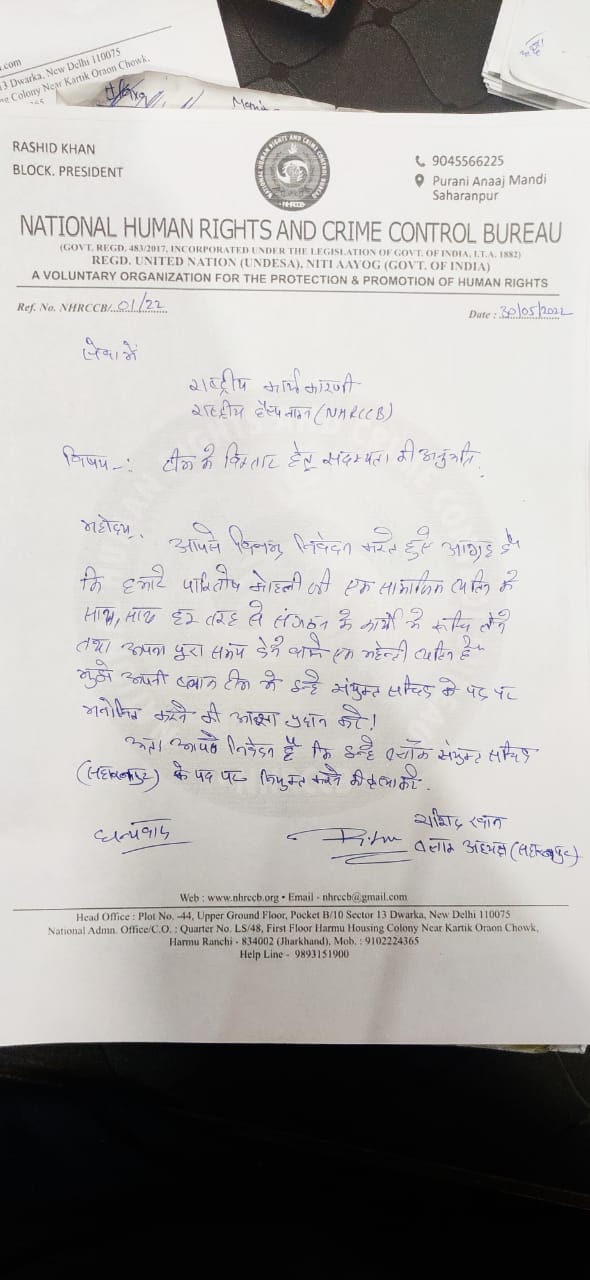 .com
13 Dwarka, New Delhi 110075
Colony Near Kartik Oraon Chowk,
RASHID KHAN
BLOCK. PRESIDENT
NATIONAL HUMAN RIGHTS AND CRIME CONTROL BUREAU
NHRCCB
9045566225
Purani Anaaj Mandi
Saharanpur
NATIONAL HUMAN RIGHTS AND CRIME CONTROL BUREAU
(GOVT. REGD. 483/2017, INCORPORATED UNDER THE LEGISLATION OF GOVT. OF INDIA, I.T.A. 1882)
REGD. UNITED NATION (UNDESA), NITI AAYOG (GOVT. OF INDIA)
A VOLUNTARY ORGANIZATION FOR THE PROTECTION & PROMOTION OF HUMAN RIGHTS
Ref. No. NHRCCB/ 01/22
Date : 30/05/2022
सेवा में
राष्ट्रीय कार्यकारणी
राष्ट्रीय (NHRCCB)
विषय -: टीम के विस्तार हेतू सदस्यता की
महोदय, आपसे विनम्र निवेदन करते हुए आग्रह है
कि हमारे जी एक सामाजिक व्यक्ति के
साथ, साथ हर तरह से संगठन के कार्यो में रूचि लेने
तथा अपना पूरा समय देने वाले एक महेन्ती व्यक्ति है
मुझे अपनी ब्लाक टीम में इन्हे संयुक्त सचिव के पद पर
मनोनित करने की प्रदान करे!
अतः आपसे निवेदन है कि इन्हे ब्लॉक संयुक्त सचिव
(सहारनपुर) के पद पर नियुक्त करने की कृपा करे.
धन्यवाद
राशिद खान
ब्लाक अध्यक्ष (सहारनपुर)
Web : www.nhrccb.org • Email - nhrccb@gmail.com
Head Office : Plot No. -44, Upper Ground Floor, Pocket B/10 Sector 13 Dwarka, New Delhi 110075
National Admn. Office/C.O. : Quarter No. LS/48, First Floor Harmu Housing Colony Near Kartik Oraon Chowk,
Harmu Ranchi - 834002 (Jharkhand), Mob. : 9102224365
Help Line - 9893151900